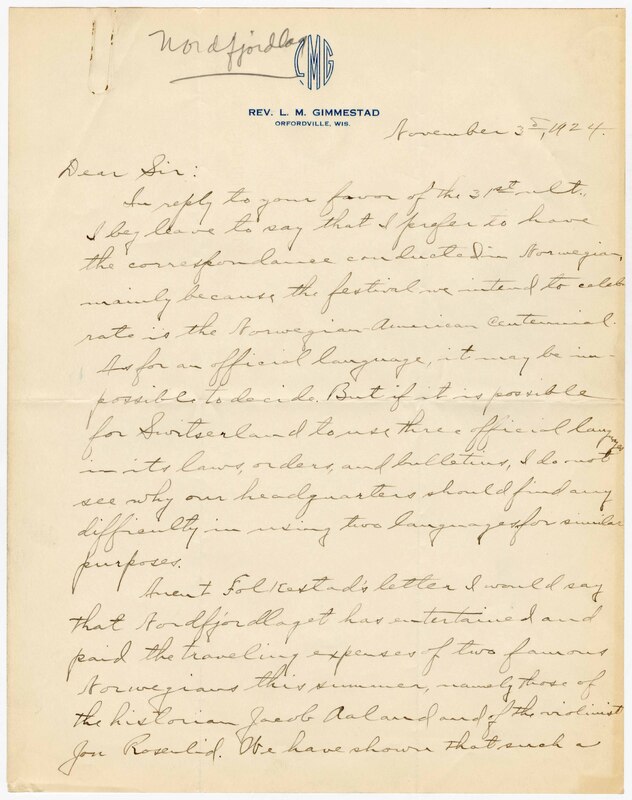 Nordfjordlag
LMG
REV. L. M. GIMMESTAD
ORFORDVILLE, WIS.
November 3d, 1924.
Dear Sir:
In reply to your favor of the 31st ult.,
I beg leave to say that I prefer to have
the correspondance conducted in Norwegian,
mainly because the festival we intend to celeb-
rate is the Norwegian-American Centennial.
As for an official language, it may be im-
possible to decide. But if it is possible
for Switserland to use three official languages
in its laws, orders, and bulletins, I do not
see why our headquarters should find any
difficulty in using two languages for similar
purposes.
Anent Folkestad's letter I would say
that Nordfjordlaget has entertained and
paid the traveling expenses of two famous
Norwegians this summer, namely those of
the historian Jacob Aaland and of the violinist
Jon Rosenlid. We have shown that such a